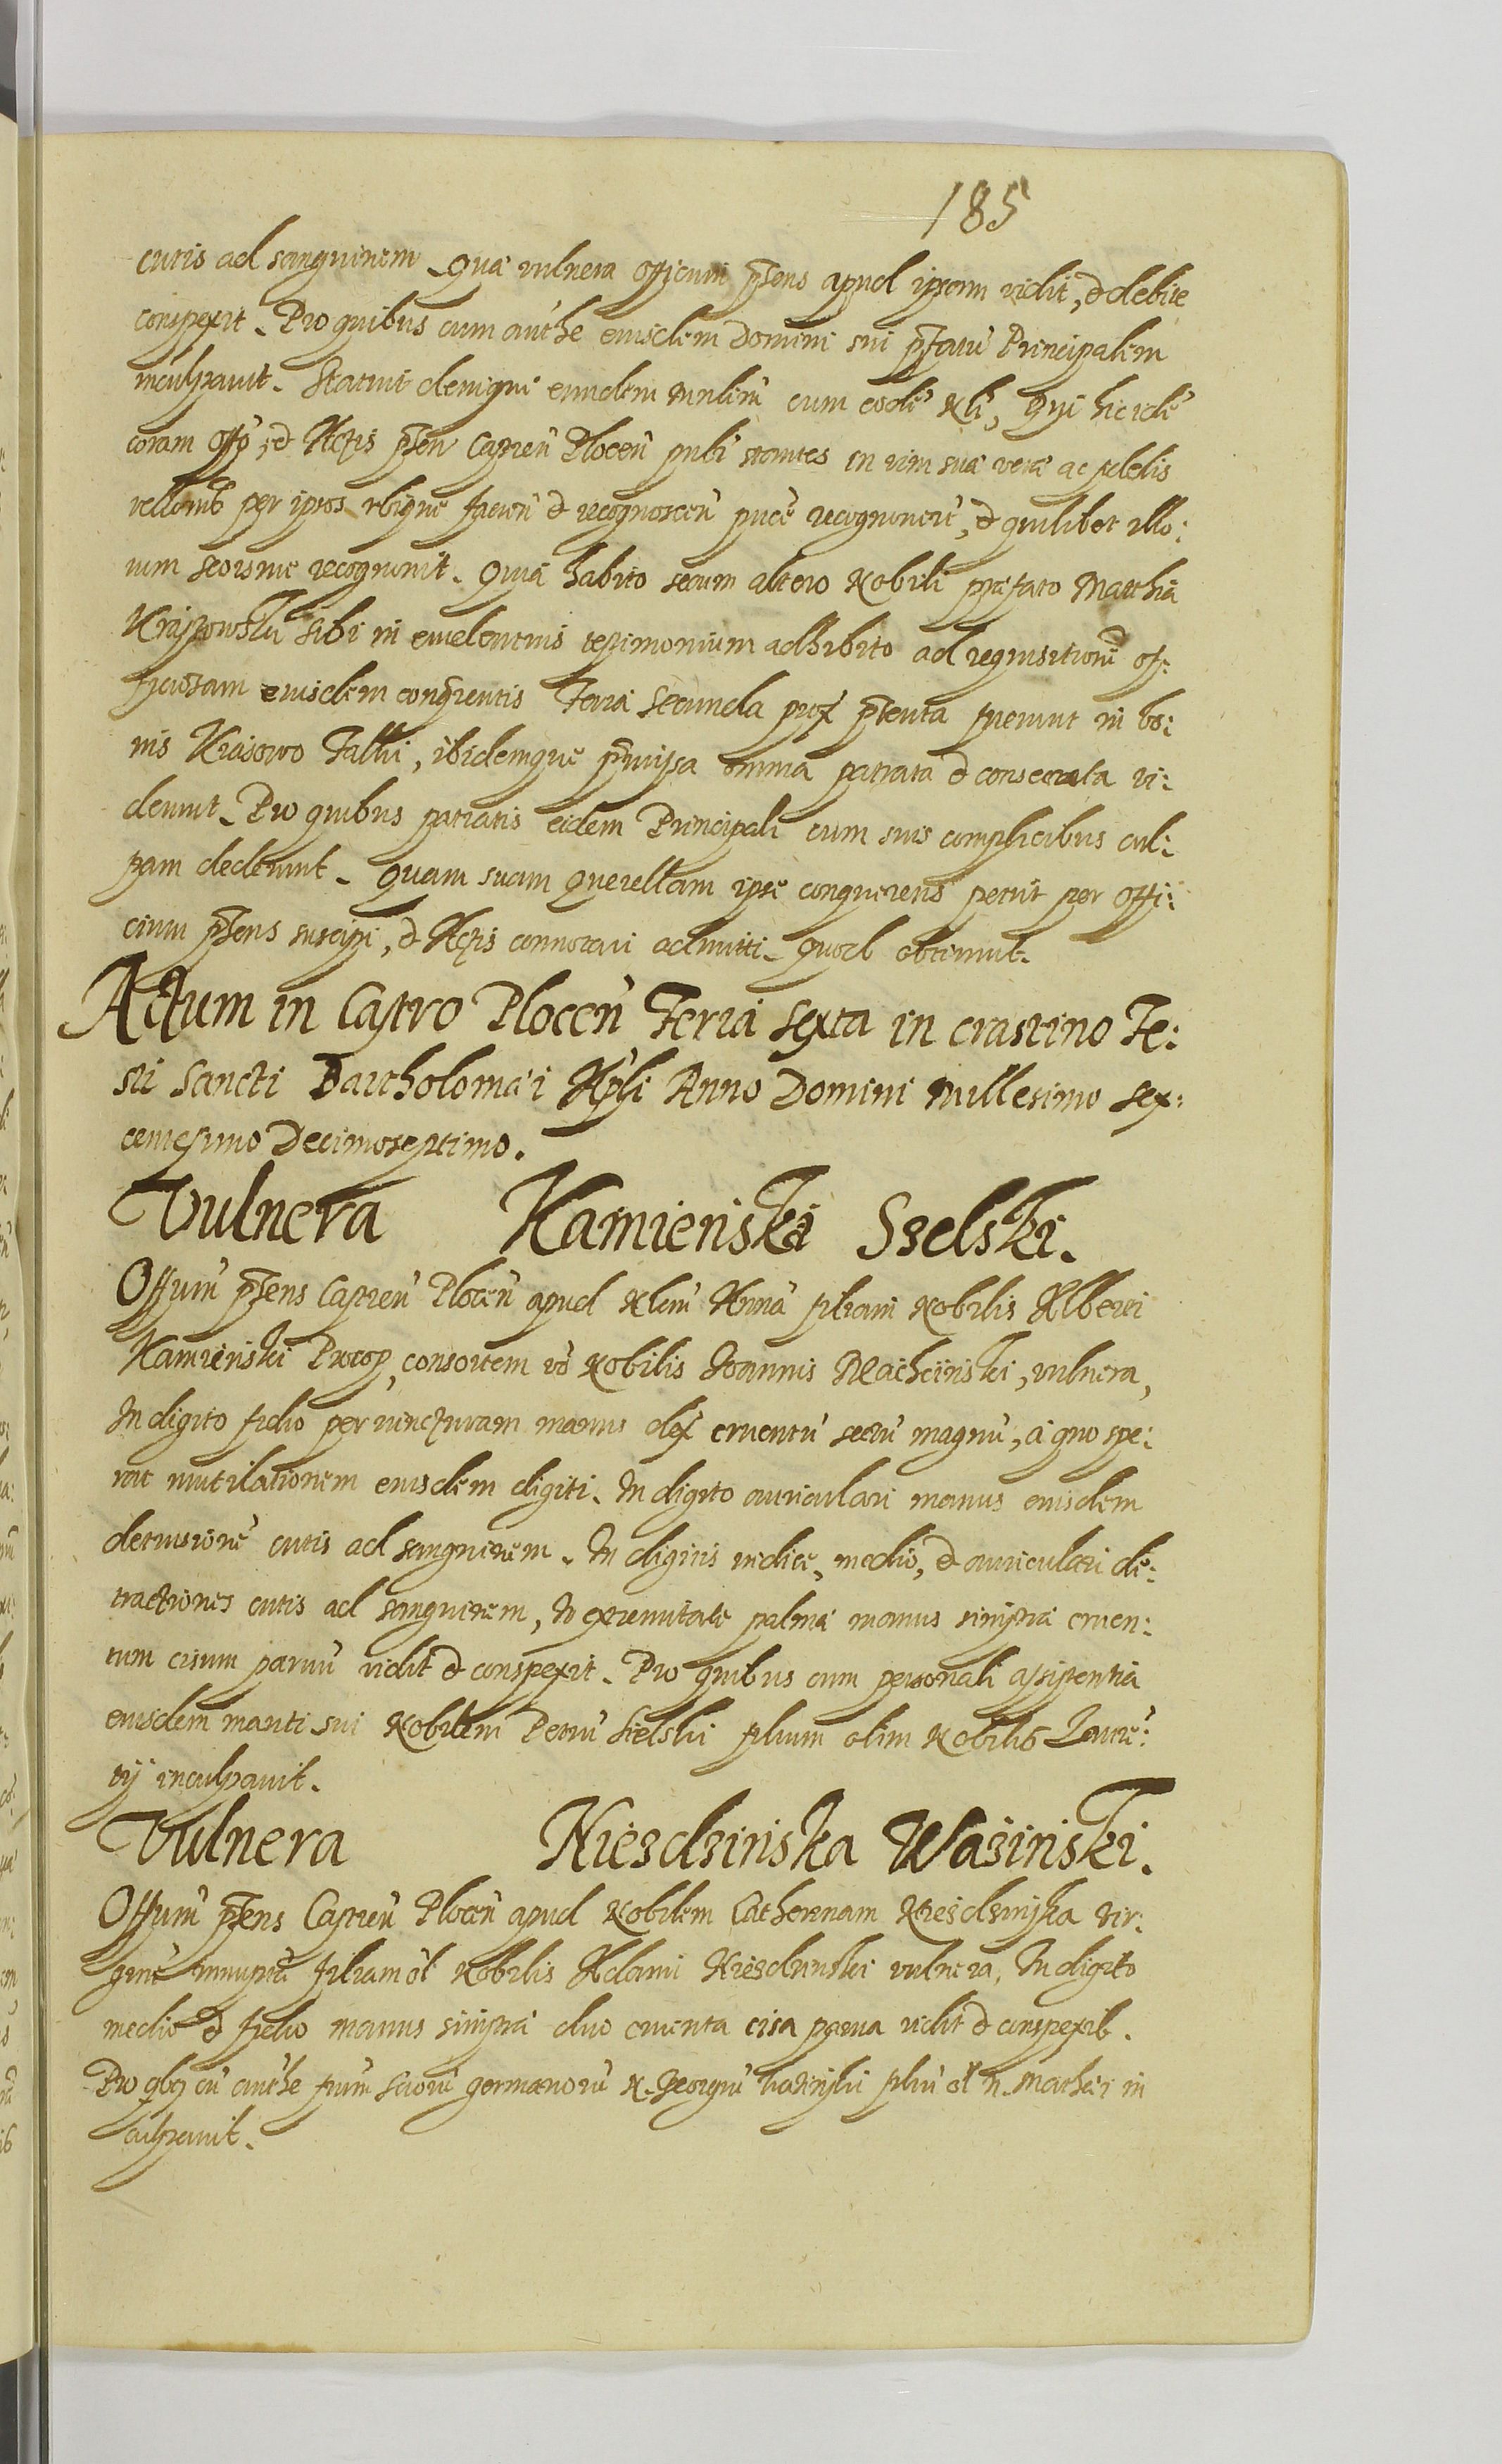 185
cutis ad sanguinem. Quæ vulnera officium pñs apud ipsum vidit, & debite
conspexit. Pro quibus cum authe eiusdem Domini sui pfatū Principalem
inculpavit. Statuit denique eundem mnlem cum eodē Nli, Qui hic idē
coram Offō, & Actis pñtn Castren̄ Plocen̄ pub stantes in vim suæ veræ ac fidelis
rellaonis per ipsos ubique facien̄ & recognoscen̄ recognoverūt, & quilibet illo:
rum seorsive recognovit. Quia habito secum altero Nobili præfato Matthia
sibi in evidentius testimonium adhibito ad requisitionē of:
ficiosam eiusdem conquerentis Feria Secunda prox pterita fuerunt in bo:
nis Krasowo Fallki, ibidemque pmissa omnia patrata & consecrata vi:
derunt. Pro quibus patratis eidem Principali cum suis complicibus cul:
pam dederunt. Quam suam Querellam ipse conquerens petiit per Offi:
cium pñs suscipi, & Actis connotari admitti. Quod obtinuit.
Actum in Castro Plocen̄ Feria Sexta in crastino Fe:
sti Sancti Bartholomæi Apli Anno Domini Millesimo Sex:
centesimo Decimoseptimo.
Vulnera Kamienski Sielski.
Offium pñs Castren̄ Plocen̄ apud Nlem Annā filiam Nobilis Alberti
Kamienski Procop, consortem vō Nobilis Joannis Machcinski, vulnera,
In digito fidio per iuncturam manus dex cruentū sectū magnū, à quo spe:
rat mutilationem eiusdem digiti. In digito auriculari manus eiusdem
detrusionē cutis ad sanguinem. In digitis indice, medio, & auriculari de:
tractiones cutis ad sanguinem, In extremitate palmæ manus sinistræ cruen:
tum cisum parvū vidit & conspexit. Pro quibus cum personali assistentia
eiusdem mariti sui Nobilem Petrū Sielski filium olim Nobilis Laurē:
tÿ inculpavit.
Vulnera Niezdzinska Wazinski.
Offium pñs Castren̄ Plocen̄ apud Nobilem Catherinam Niezdzinska vir:
ginē innuptā filiam ol Nobilis Adami Niezdzinski vulnera, In digito
medio & fidio manus sinistræ duo cruenta cisa parva vidit & conspexit.
Pro qbq cū authe frum Suorū germanorū N. Georgiū Wazinski filiū ol N. Mathæi in
culpavit.